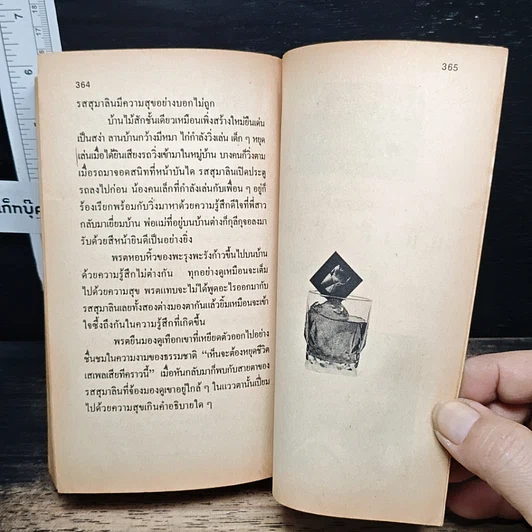 364
รสสุมาลินมีความสุขอย่างบอกไม่ถูก
บ้านไม้สักชั้นเดียวเหมือนเพิ่งสร้างใหม่ยืนเด่น
เป็นสง่า ลานบ้านกว้างมีหมา ไก่กำลังวิ่งเล่น เด็ก ๆ หยุด
เล่นเมื่อได้ยินเสียงรถวิ่งเข้ามาในหมู่บ้าน บางคนก็วิ่งตาม
เมื่อรถมาจอดสนิทที่หน้าบันได รสสุมาลินเปิดประตู
รถลงไปก่อน น้องคนเล็กที่กำลังเล่นกับเพื่อน ๆ อยู่ก็
ร้องเรียกพร้อมกับวิ่งมาหาด้วยความรู้สึกดีใจที่พี่สาว
กลับมาเยี่ยมบ้าน พ่อแม่ที่อยู่บนบ้านต่างก็กุลีกุจอลงมา
รับด้วยสีหน้ายินดีเป็นอย่างยิ่ง
พรตหอบหิ้วของพะรุงพะรังก้าวขึ้นไปบนบ้าน
ด้วยความรู้สึกไม่ต่างกัน ทุกอย่างดูเหมือนจะเต็ม
ไปด้วยความสุข พรตแทบจะไม่ได้พูดอะไรออกมากับ
รสสุมาลินเลยทั้งสองต่างมองตากันแล้วยิ้มเหมือนจะเข้า
ใจซึ้งถึงกันในความรู้สึกที่เกิดขึ้น
พรตยืนมองดูเทือกเขาที่เหยียดตัวออกไปอย่าง
ชื่นชมในความงามของธรรมชาติ “เห็นจะต้องหยุดชีวิต
เสเพลเสียทีคราวนี้” เมื่อหันกลับมาก็พบกับสายตาของ
รสสุมาลินที่จ้องมองดูเขาอยู่ใกล้ ๆ ในแววตานั้นเปี่ยม
ไปด้วยความสุขเกินคำอธิบายใด ๆ
365